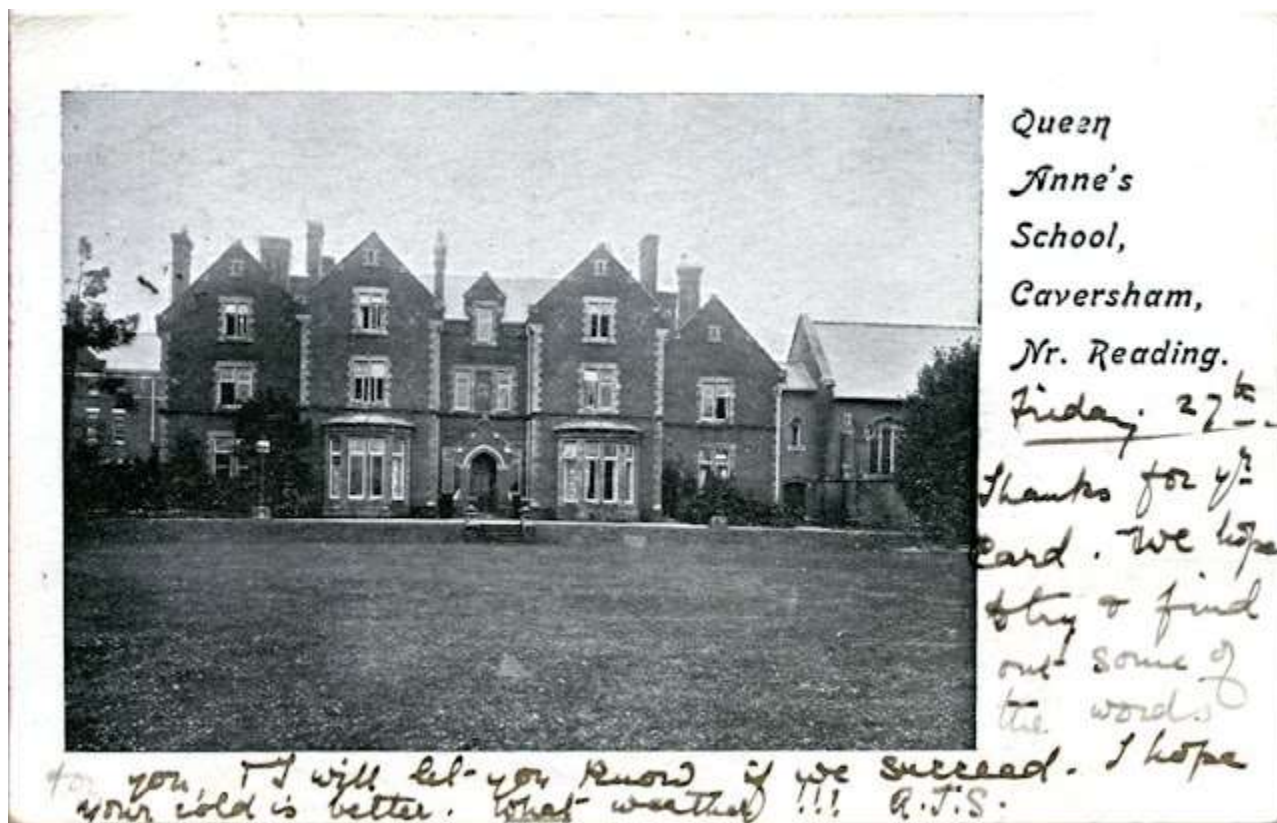 Queen
Anne's
School,
Caversham,
Nr. Reading.
Friday. 27th.
Thanks for yr
Card. We hope
to try & find
out some of
the words
for you, & I will let you know if we succeed. I hope
your cold is better. What weather!!! A.J.S.